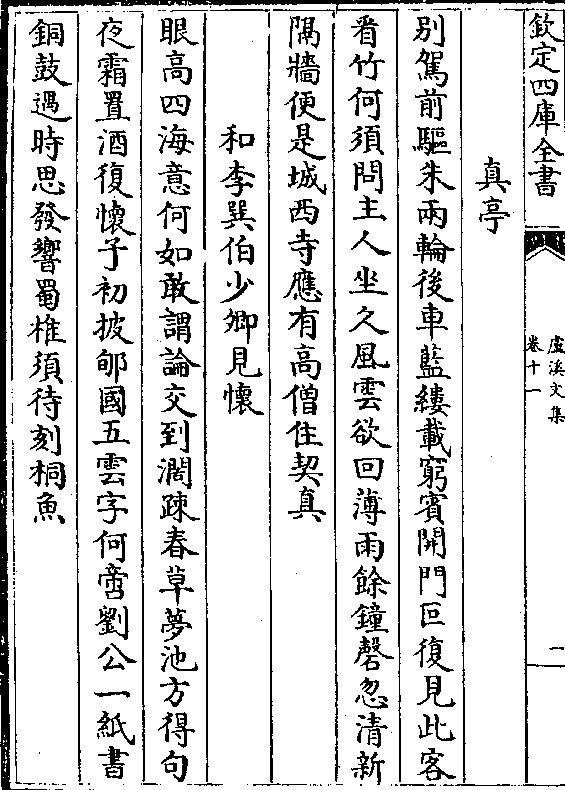 欽定四庫全書
盧溪文集
卷十一
一
真亭
別駕前驅朱兩輪後車藍縷載窮賓開門叵復見此客
看竹何須問主人坐久風雲欲回薄雨餘鐘磬忽清新
隔牆便是城西寺應有高僧住契真
和李巽伯少卿見懷
眼高四海意何如敢謂論交到濶疎春草夢池方得句
夜霜置酒復懷子初披郇國五雲字何啻劉公一紙書
銅鼓遇時思發響蜀椎須待刻桐魚